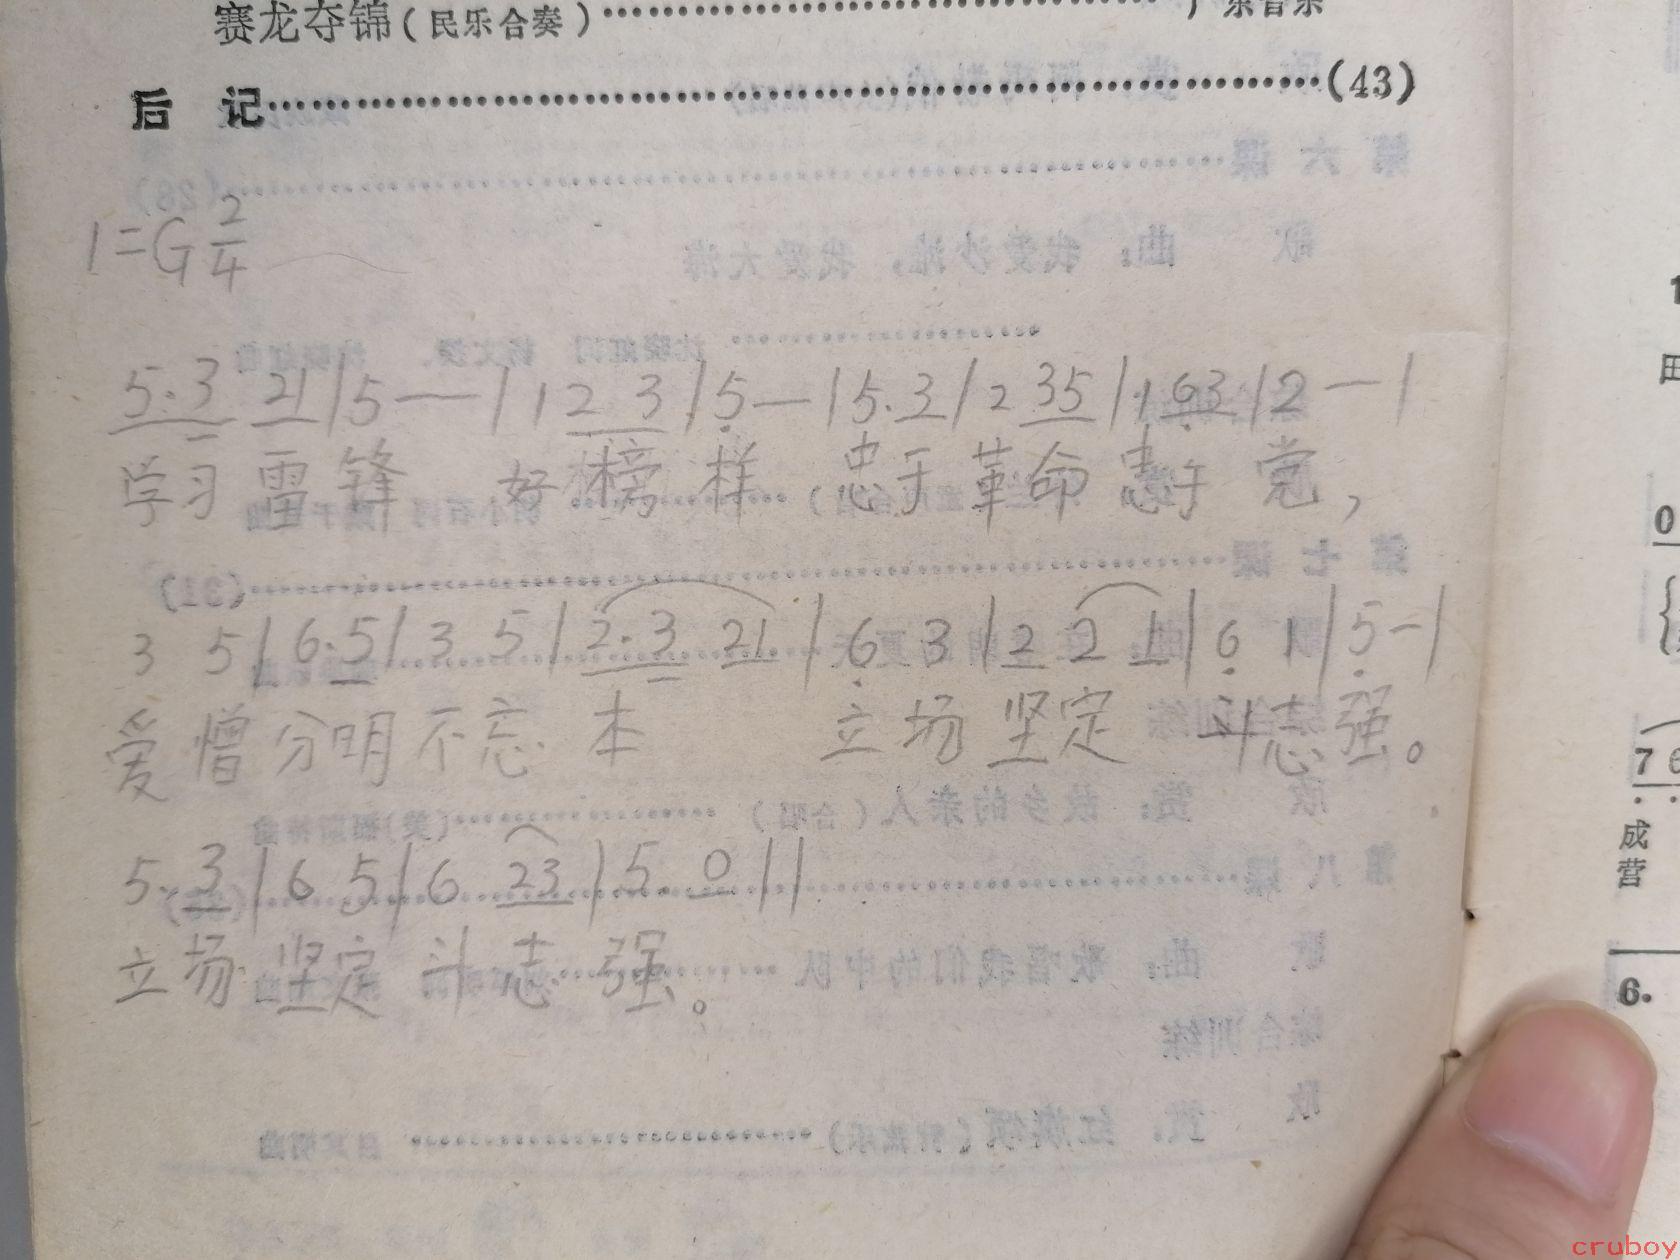 赛龙夺锦(民乐合奏)……………………………广东音乐
后 记……………………………………………………(43)
1=G 2/4
5.3 21|5—|1 23|5—|5.3|2 35|1 63|2—|
学习雷锋 好榜样 忠于革命忠于党，
3 5|6.5|3 5|2.3 21|6 3|2 2 1|6 1|5—|
爱憎分明不忘本 立场坚定斗志强。
5.3|6 5|6 23|5. 0||
立场坚定斗志强。
0
7 6
成
营
6.
cruboy